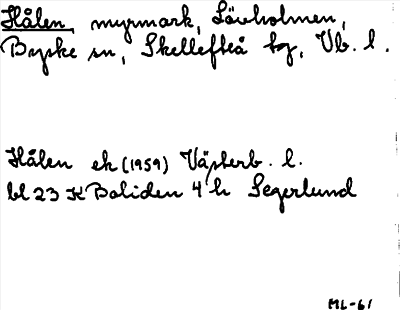 Hålen, myrmark, Lövholmen,
Byske sn, Skellefteå tg, Vb. l.
Hålen ek (1959) Västerb. l.
bl 23 K Boliden 4 h Segerlund
ML-61